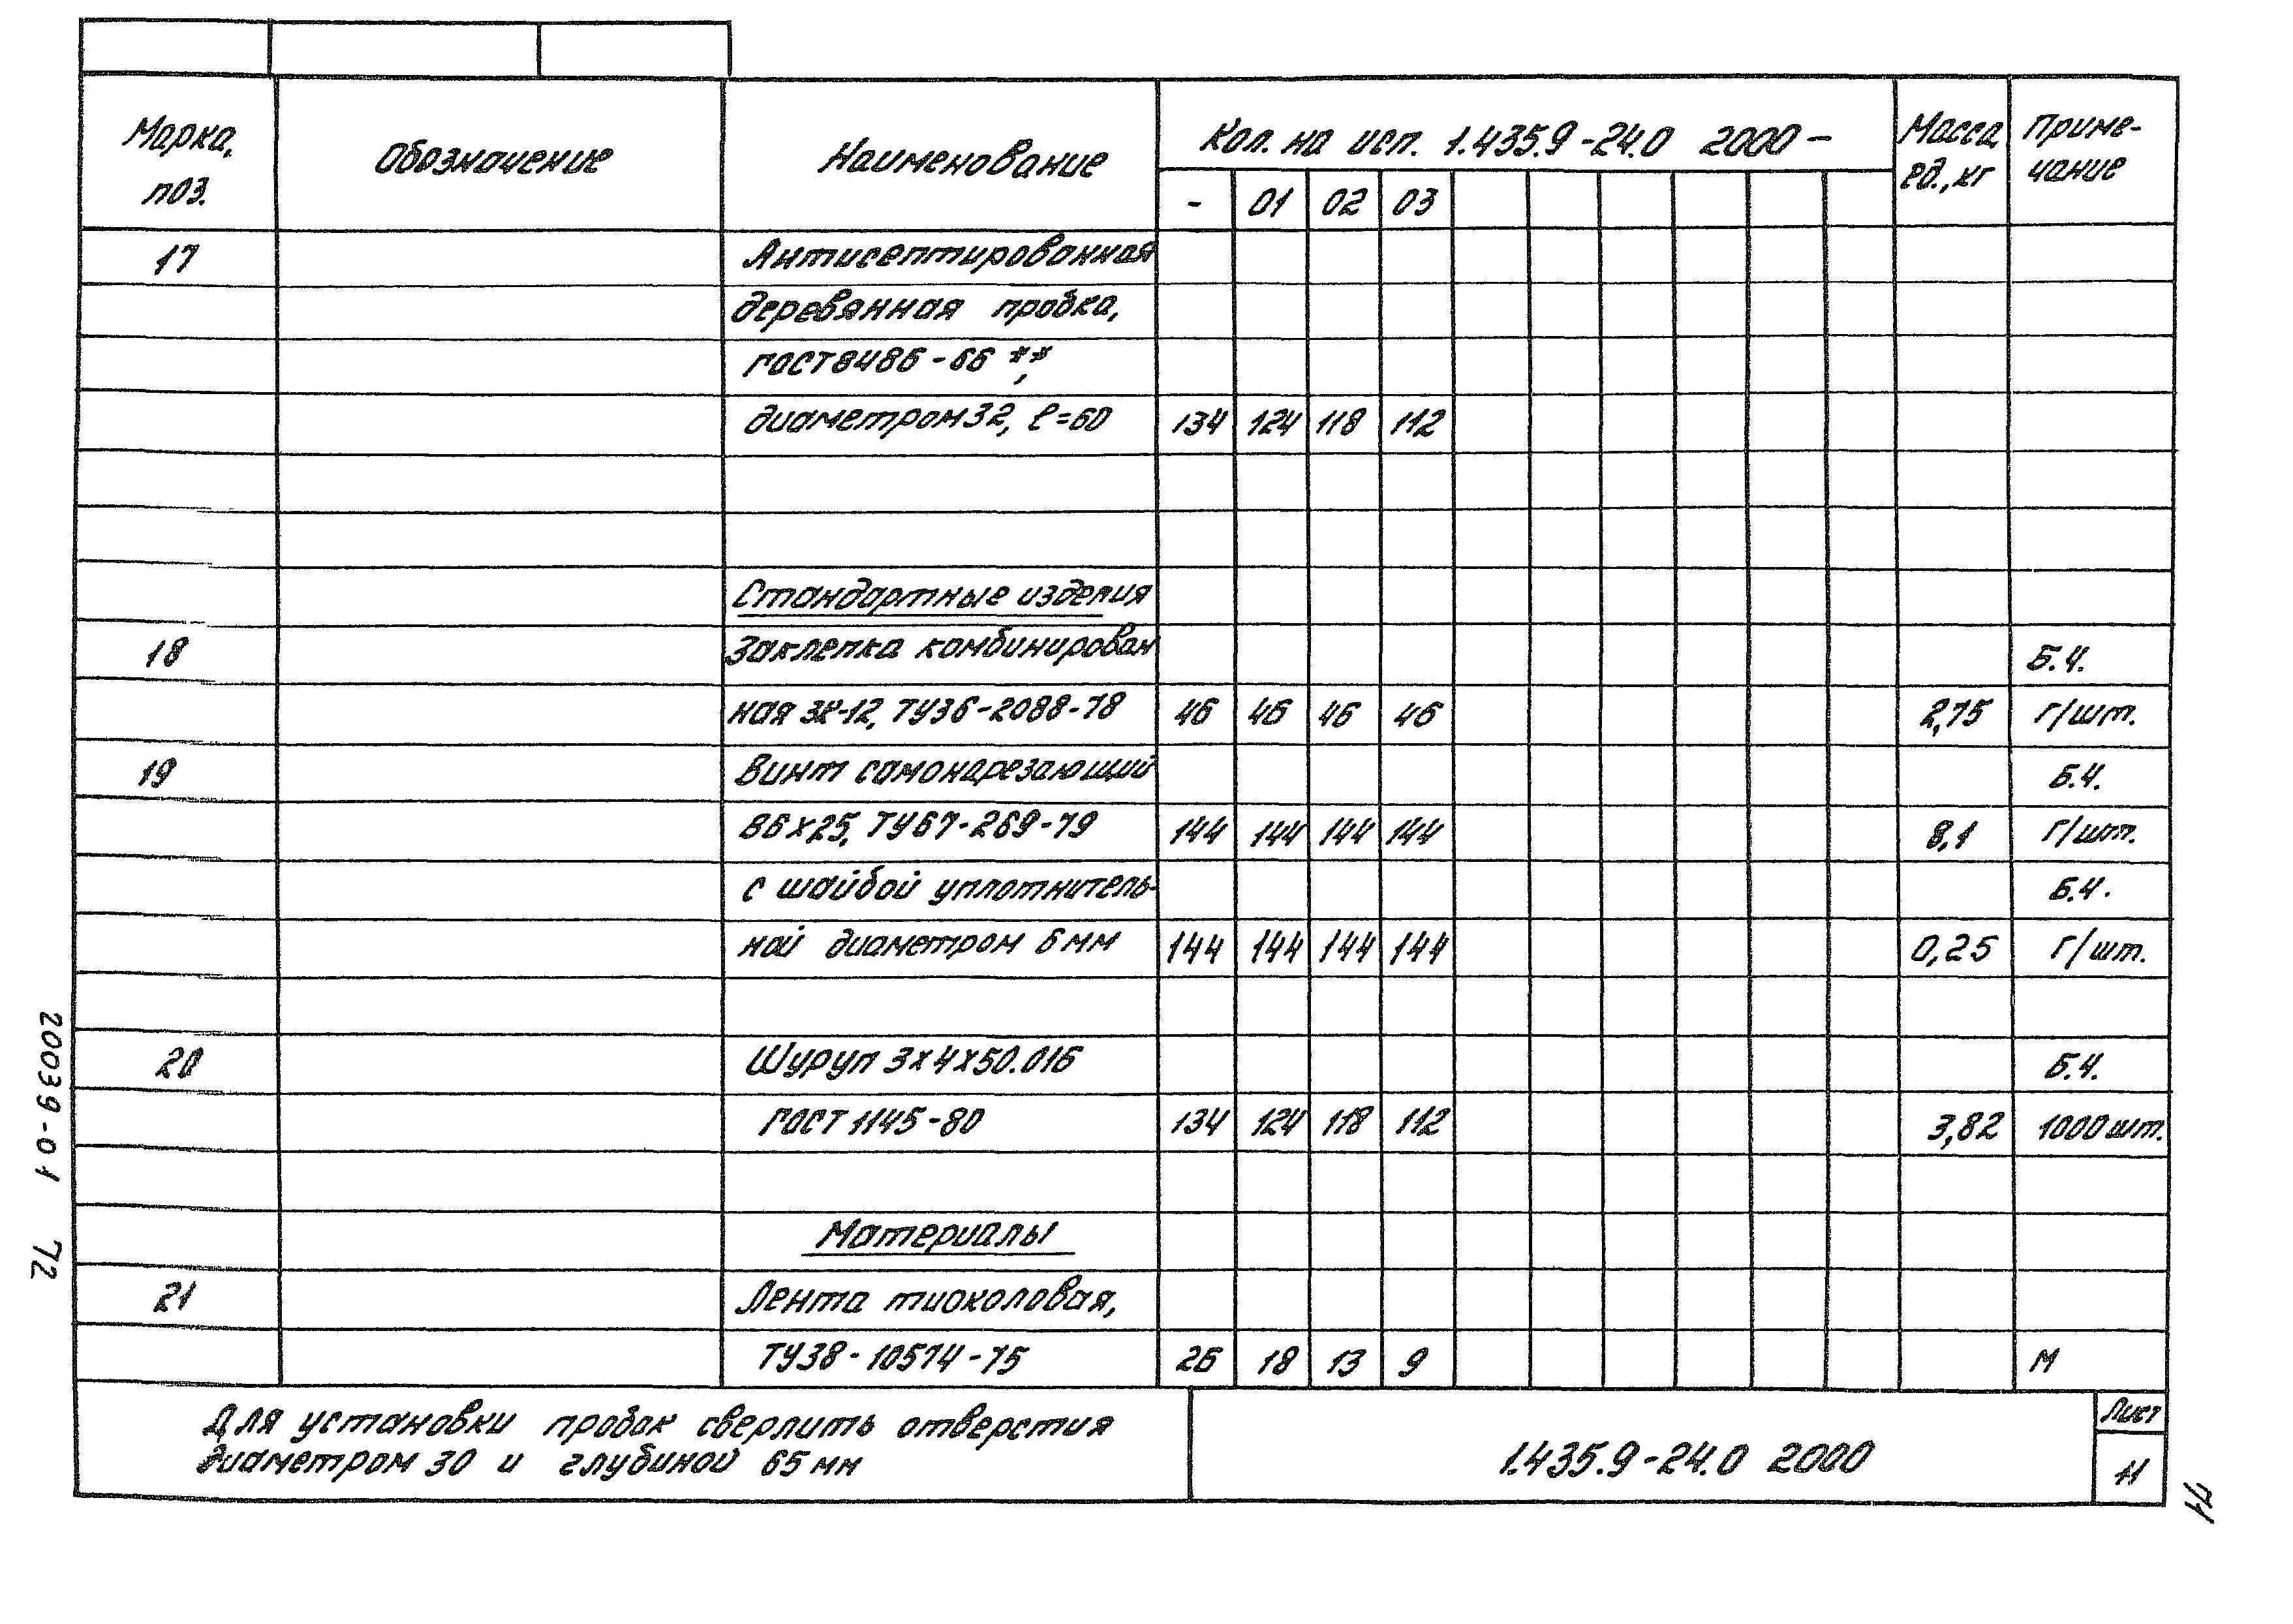 Марка, поз. Обозначение Наименование Кол. на исп. 1.435.9-24.0 2000- Масса ед., кг Приме-чание
- 01 02 03
17 Антисептированная
деревянная пробка,
ГОСТ 8486-66 **,
диаметром 32, ℓ=60 134 124 118 112
Стандартные изделия
18 Заклепка комбинирован Б.Ч.
ная ЗК-12, ТУ36-2088-78 46 46 46 46 2,75 г/шт.
19 Винт самонарезающий Б.Ч.
В6х25, ТУ67-269-79 144 144 144 144 8,1 г/шт.
с шайбой уплотнитель- Б.Ч.
ной диаметром 6 мм 144 144 144 144 0,25 г/шт.
20 Шуруп 3х4х50.016 Б.Ч.
ГОСТ 1145-80 134 124 118 112 3,82 1000 шт.
Материалы
21 Лента тиоколовая,
ТУ38-10574-75 26 18 13 9 м
Для установки пробок сверлить отверстия
диаметром 30 и глубиной 65 мм
1.435.9-24.0 2000
Лист
11
20039-01 72